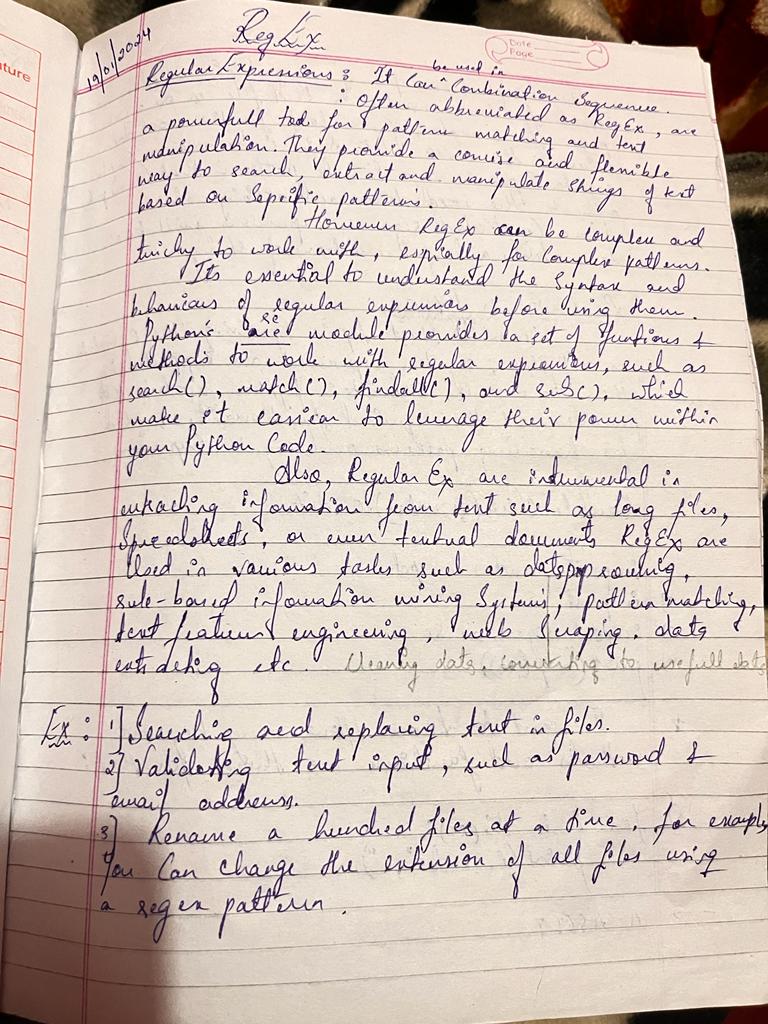 ature
RegEx
Date
Page
19/01/2024
Regular Expressions : It Can be used in Combination Sequence.
: Often abbreviated as RegEx, are
a powerfull tool for pattern matching and text
manipulation. They provide a concise and flexible
way to search, extract and manipulate strings of text
based on Specific patterns.
However RegEx can be complex and
tricky to work with, espially for Complex patterns.
Its essential to understand the Syntax and
behaviours of regular expressions before using them.
Python's re module provides a set of functions &
methods to work with regular expressions, such as
search(), match(), findall(), and sub(), which
make it easier to leverage their power within
your Python Code.
Also, Regular Ex are instrumental in
extracting information from text such as long files,
Spreedsheets, or even textual documents RegEx are
Used in various tasks such as
rule-based information mining Systems, pattern matching,
text features engineering, web Scraping, data
extracting etc. Cleaning data, converting to usefull data
Ex: 1] Searching and replacing text in files.
2] Validating text input, such as password &
email address.
3] Rename a hundred files at a time. for example,
You Can change the extension of all files using
a regex pattern.